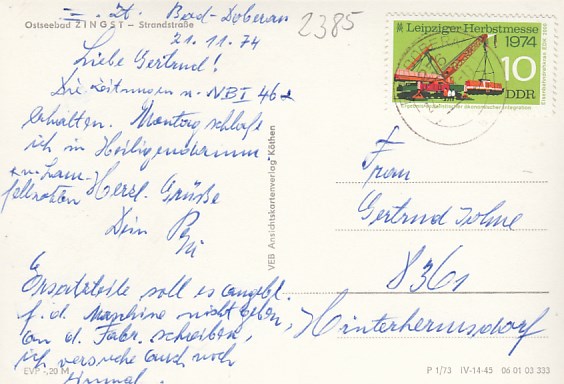 Ostseebad ZINGST – Strandstraße
z. Zt. Bad-Doberan
21.11.74
2385
Liebe Gertrud!
Die Zeitungen u. NBI 46
erhalten. Montag schlafe
ich in Heiligendamm
Herzl. Grüße
Dein
Ersatzteile soll es angebl.
f. d. Maschine nicht geben,
an d. Fabr. schreiben,
ich versuche auch noch
einmal.
EVP -,20 M
VEB Ansichtskartenverlag Köthen
Leipziger Herbstmesse
1974
10
DDR
Frau
Gertrud
8361
Hinterhermsdorf
P 1/73 IV-14-45 06 01 03 333